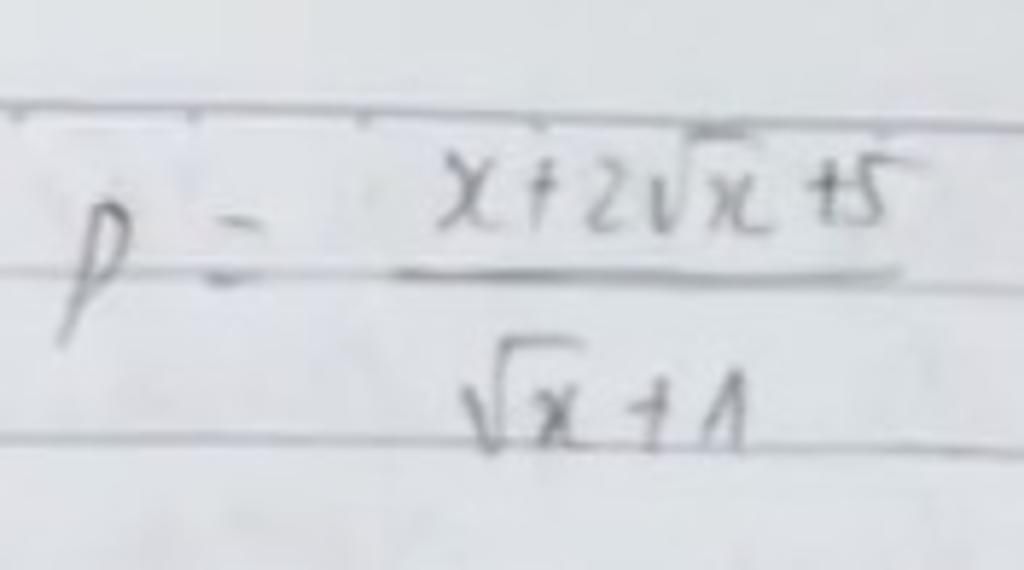 P = \frac{x+2\sqrt{x}+5}{\sqrt{x}+1}